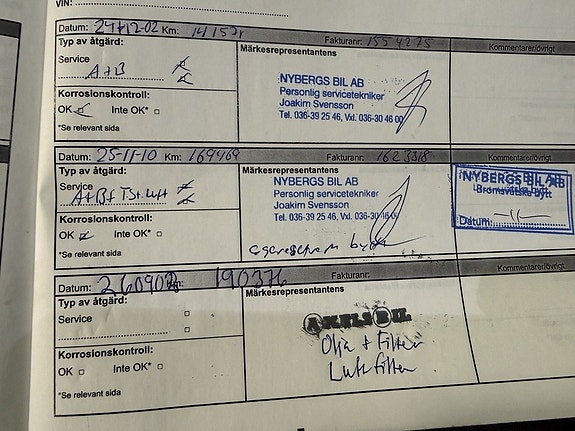 VIN:
Datum: 24-12-02 Km: Fakturanr: 1554275 Kommentarer/övrigt
Typ av åtgärd: Märkesrepresentantens
Service
A+B
NYBERGS BIL AB
Personlig servicetekniker
Joakim Svensson
Tel. 036-39 25 46, Vxl. 036-30 46 00
Korrosionskontroll:
OK Inte OK*
*Se relevant sida
Datum: 25-11-10 Km: 169469 Fakturanr: 1623318 Kommentarer/övrigt
Typ av åtgärd: Märkesrepresentantens
Service
A+B+ Luft
NYBERGS BIL AB
Personlig servicetekniker
Joakim Svensson
Tel. 036-39 25 46, Vxl. 036-30 46 00
bytt
NYBERGS BIL AB
Bromsvätska bytt
Datum: -11-
Korrosionskontroll:
OK Inte OK*
*Se relevant sida
Datum: Km: 190376 Fakturanr: Kommentarer/övrigt
Typ av åtgärd: Märkesrepresentantens
Service
AXELS BIL
Olja + Filter
Luftfilter
Korrosionskontroll:
OK Inte OK*
*Se relevant sida